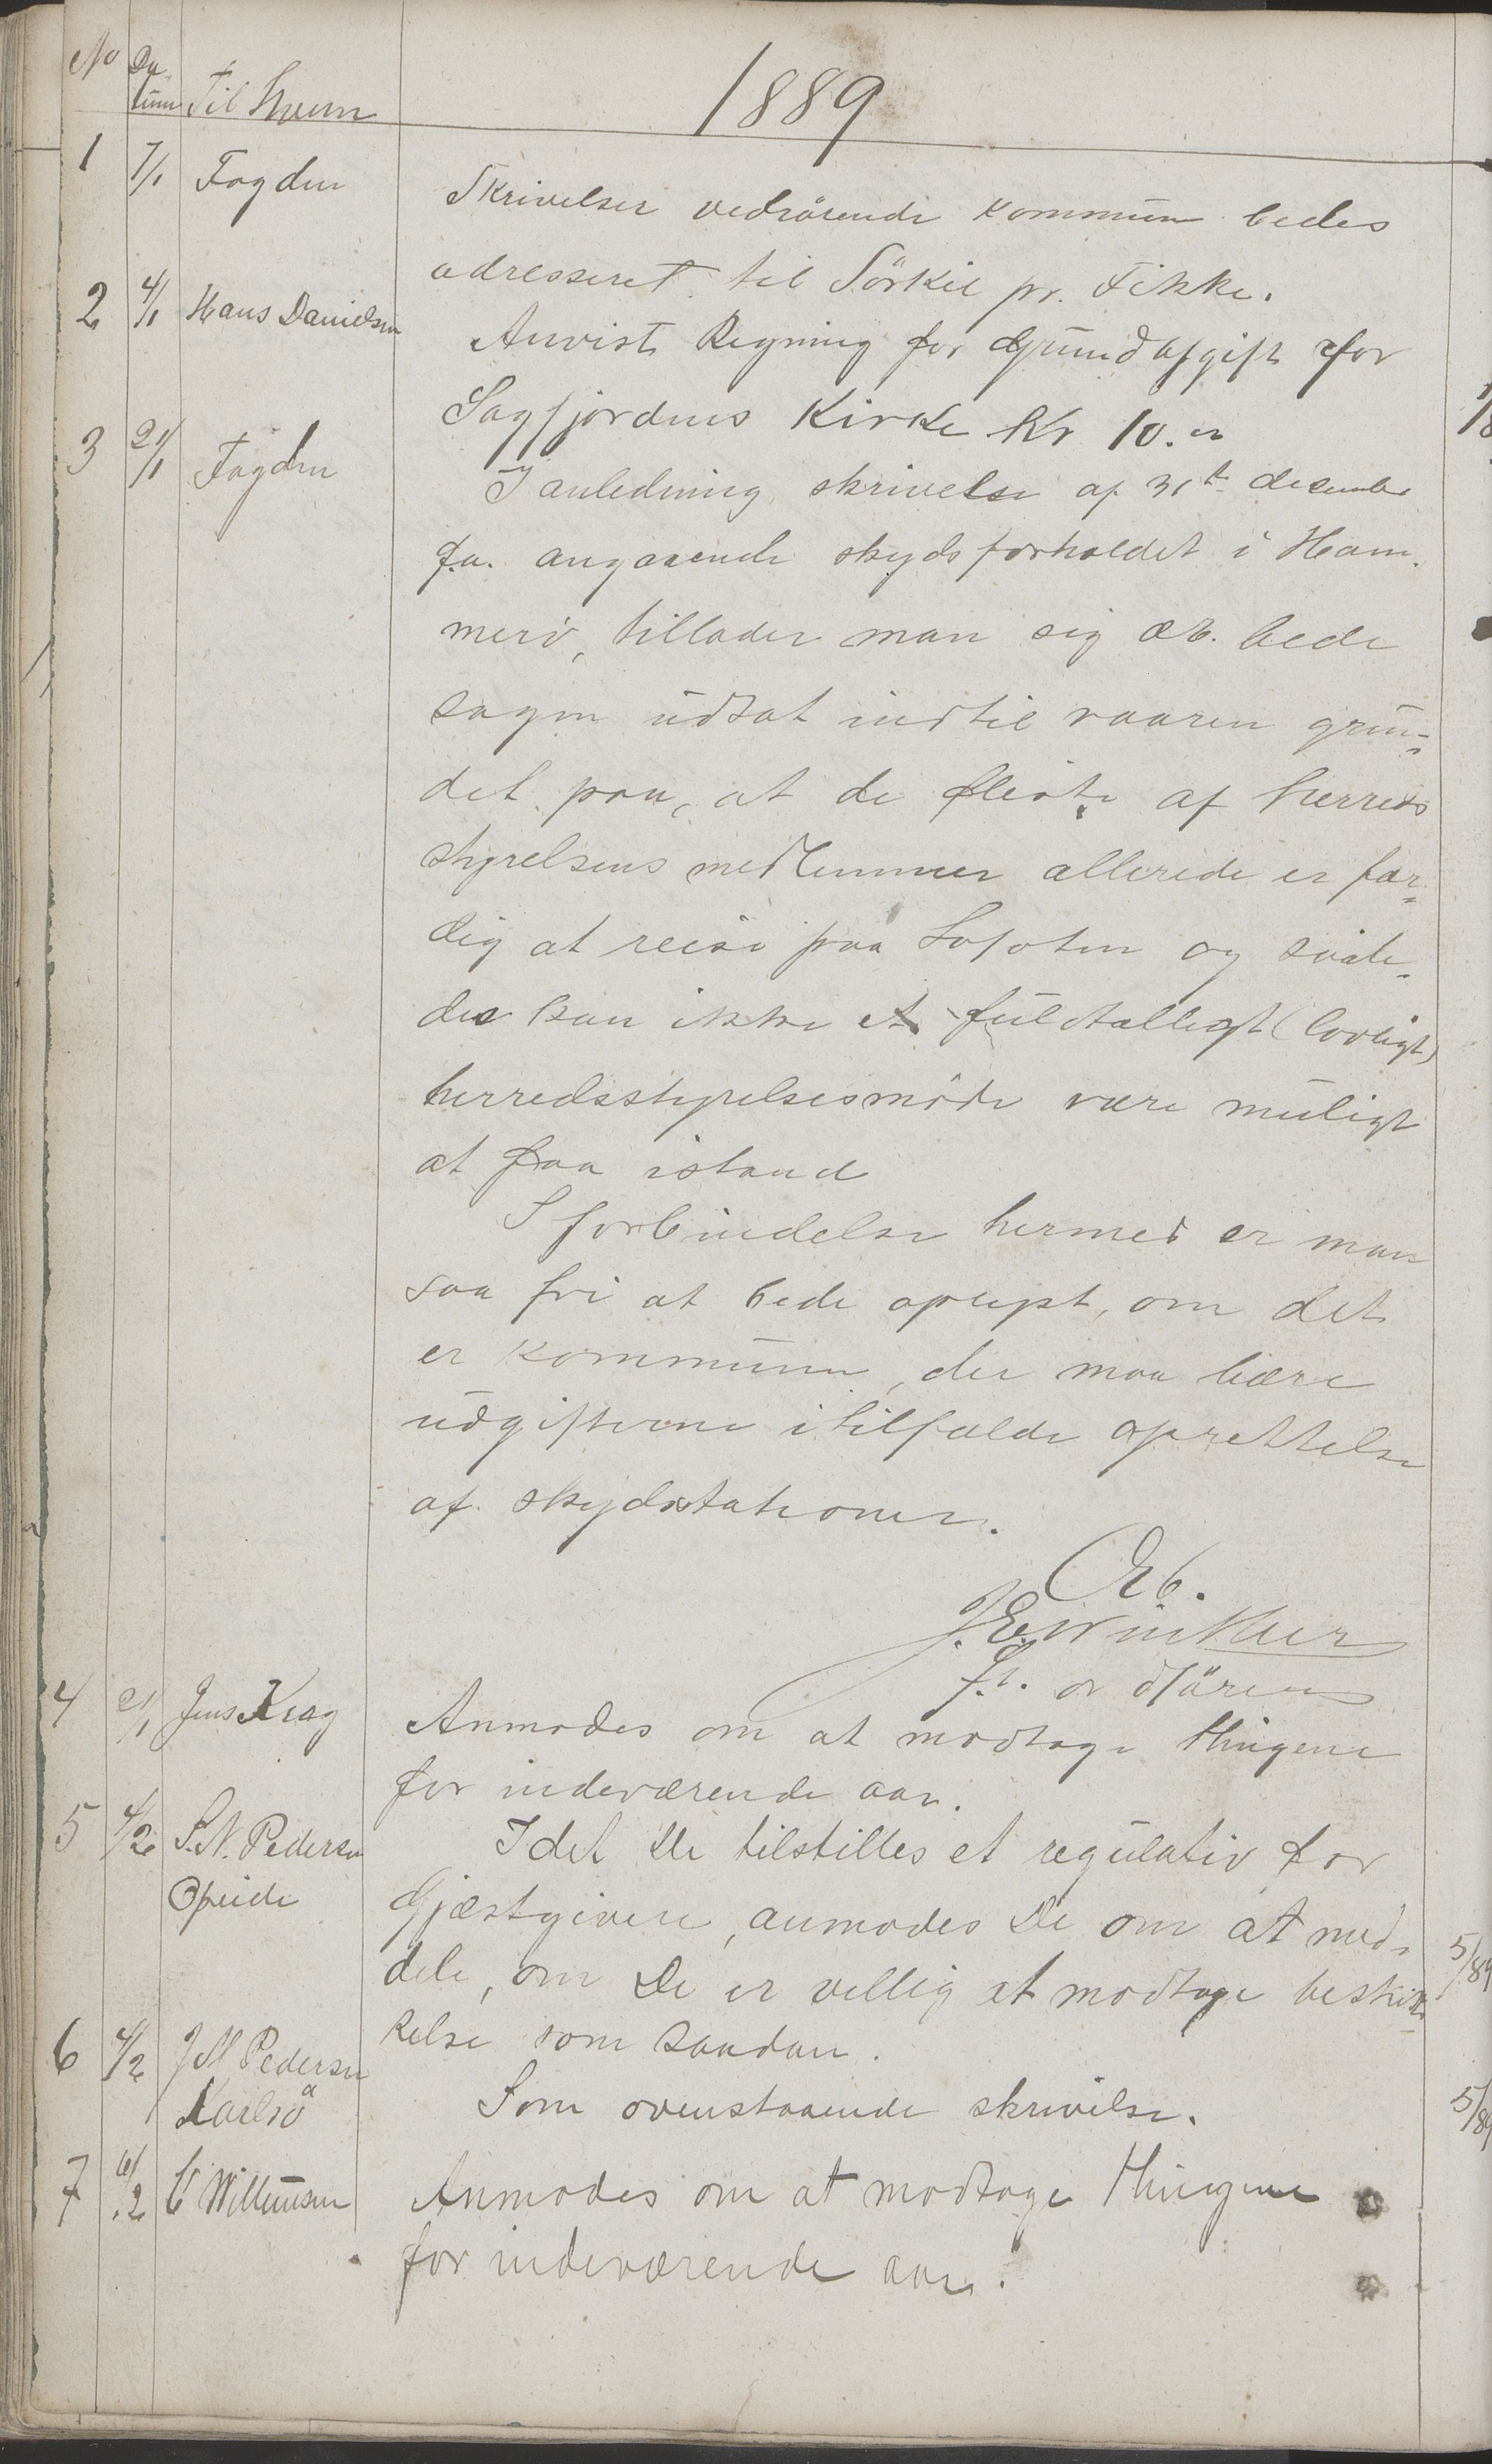 No Da- Til hvem 1889
tum
1 7/1 Fogden Skrivelser vedrörende kommunen bedes
adresseret til Sörkil pr. Fikke.
2 4/1 Hans Danielsen Anvist Regning for Grundafgift for
Sagfjordens Kirke Kr 10.
3 21/1 Fogden I anledning skrivelse af 31te december
f.a. angaaende skydsforholdet i Ham-
merö, tillader man sig ær. bede
sagen udsat indtil vaaren grun-
det paa, at de fleste af herreds
styrelsens medlemmer allerede er fær-
dig at reise paa Lofoten og saale-
des kan ikke et fuldtalligt (lovligt)
herredsstyrelsesmöde være muligt
at faa istand
I forbindelse hermed er man
saa fri at bede oplyst, om det
er kommunen, der maa bære
udgifterne i tilfælde oprettelse
af skydsstationer.
Ærb.
f.t. ordförer
4 21/1 Jens Krag Anmodes om at modtage thingene
for indeværende aar.
5 4/2 S.N. Pedersen Idet De tilstilles et regulativ for
Opeide Gjæstgivere, anmodes De om at med-
dele, om De er villig at modtage beskik-
kelse som saadan.
6 4/2 J M Pedersen
Karlsö Som ovenstaaende skrivelse.
7 6/2 C Willumsen Anmodes om at modtage thingene
for indeværende aar.
5/89
5/89